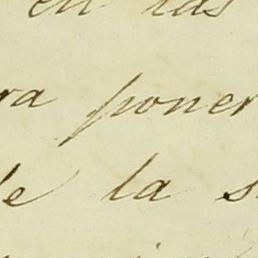 en las
ra poner
de la s